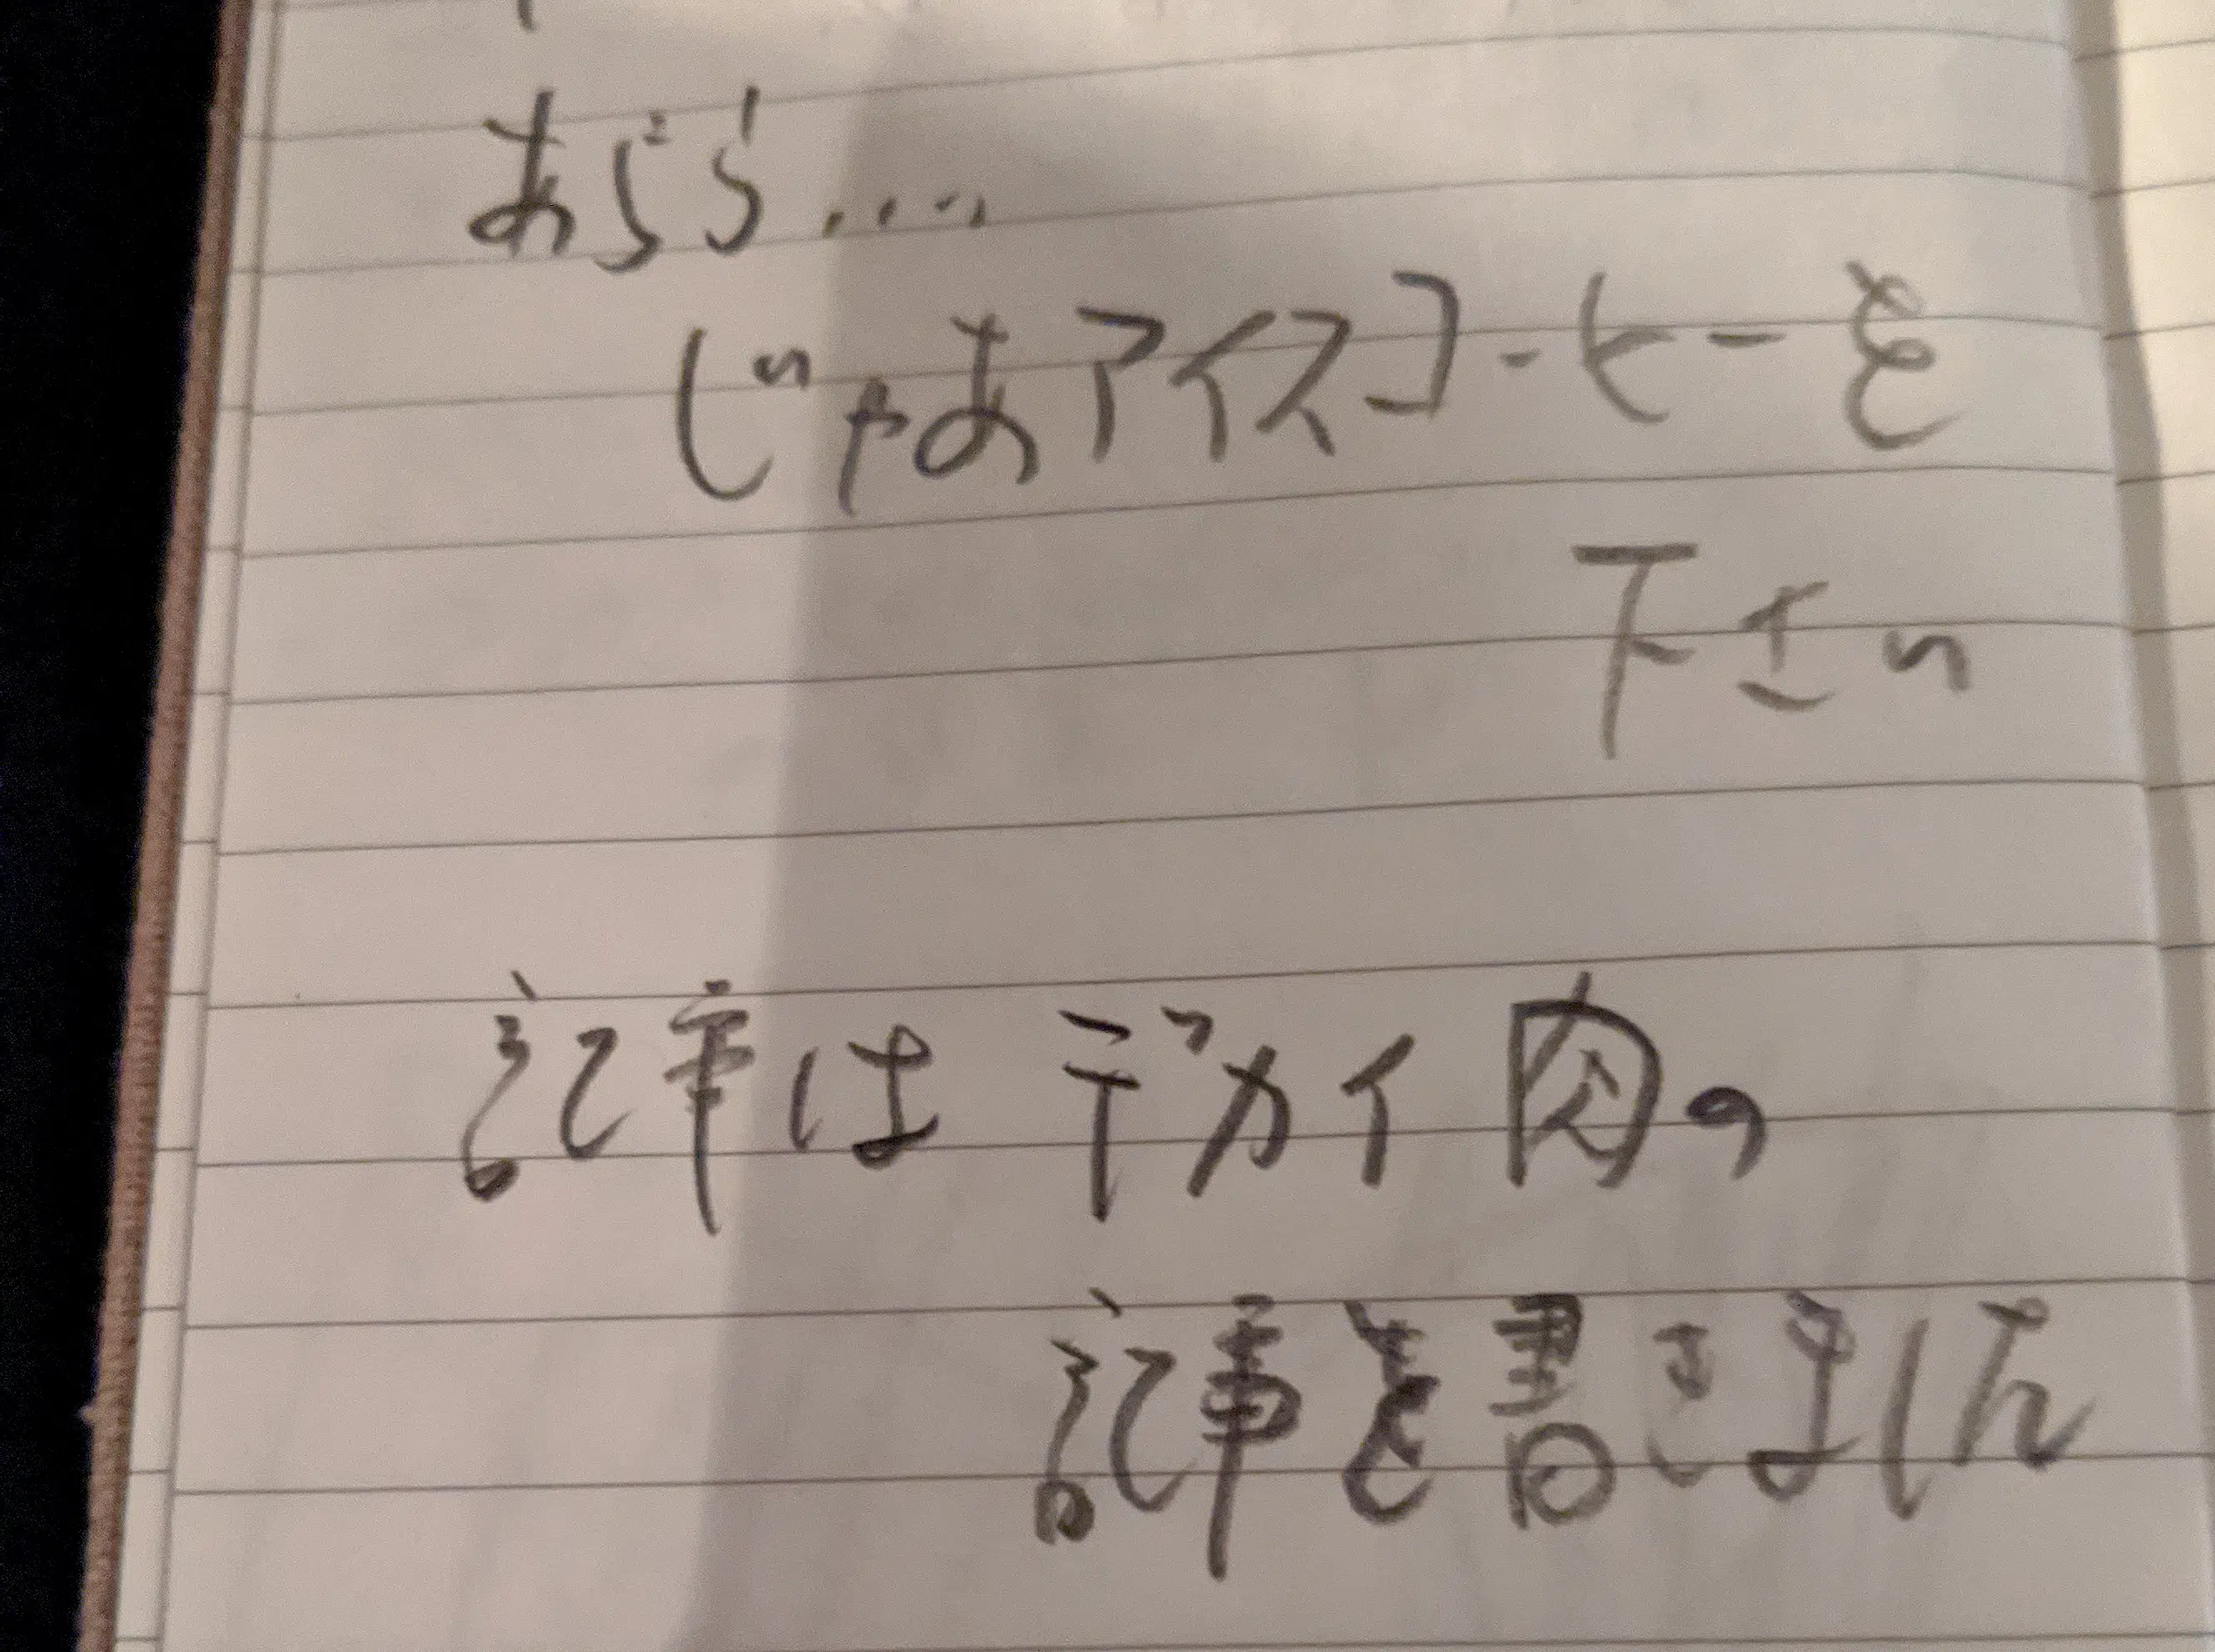 あらら....
じゃあアイスコーヒーを
下さい
記事はデカイ肉の
記事を書きました